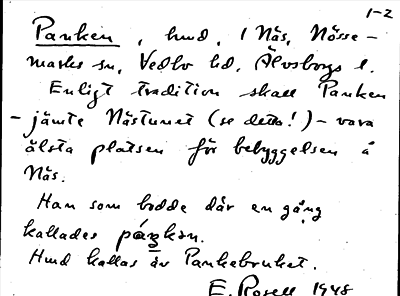 1-2
Panken, hmd, 1 Näs, Nösse-
marks sn, Vedbo hd, Älvsborgs l.
Enligt tradition skall Panken
- jämte Nästunet (se detta!) - vara
älsta platsen för bebyggelsen å
Näs.
Han som bodde där en gång
kallades páŋkən.
Hmd kallas äv Pankebruket.
E. Rosell 1948